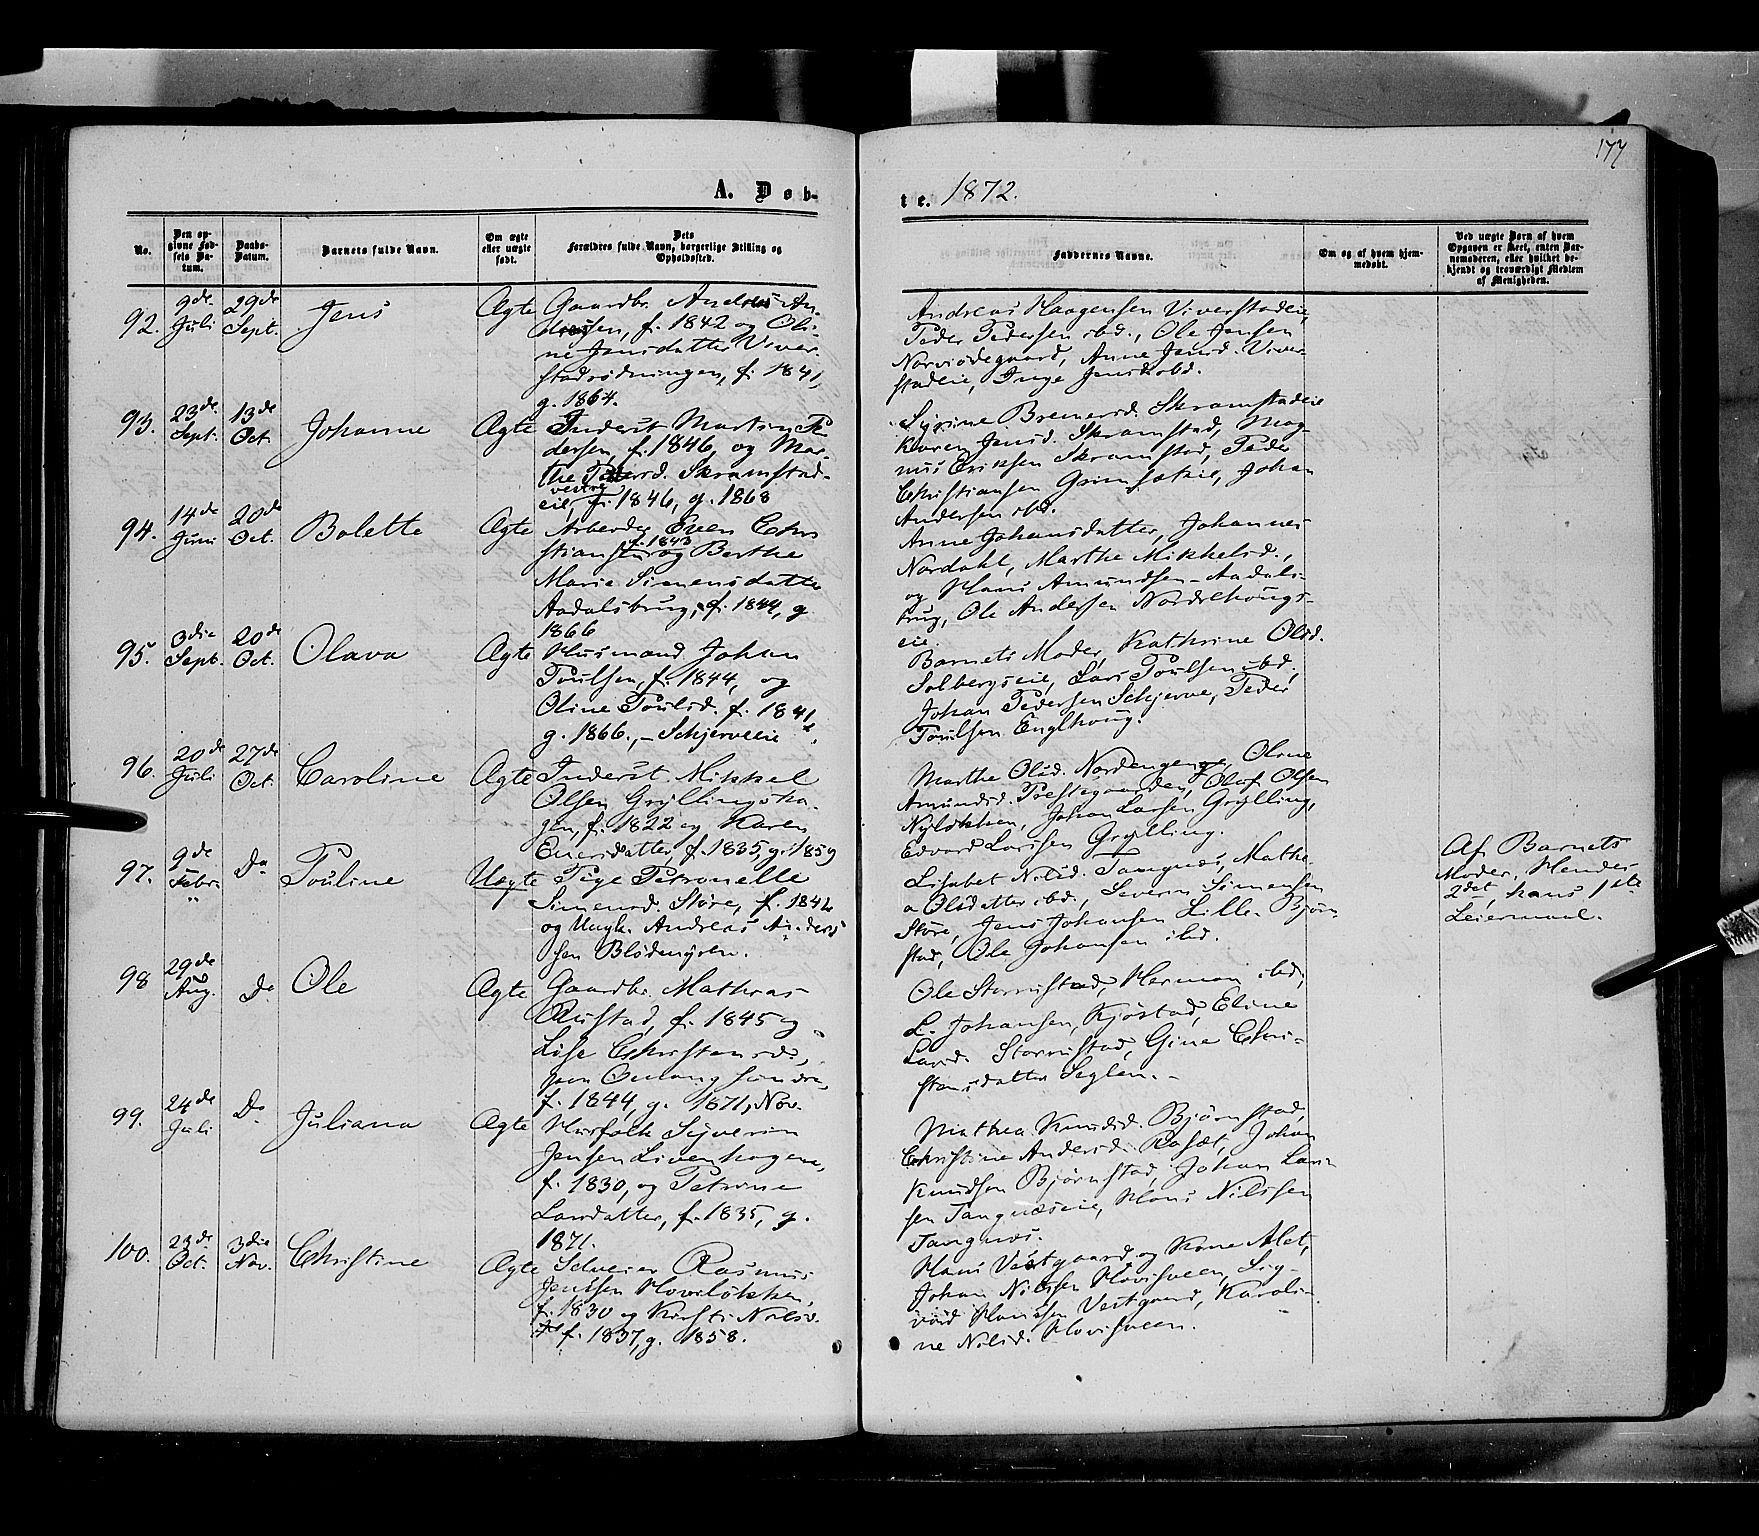 177
A. Døb-
te. 1872.
No.
Den op-
givne Fød-
sels Da-
tum.
Daabs-
Datum.
Barnets fulde Navn.
Om ægte
eller uægte
født.
Dets
Forældres fulde Navn, borgerlige Stilling og
Opholdssted.
Faddernes Navne.
Om og af hvem hjem-
medøbt.
Ved uægte Børn af hvem
Opgaven er skeet, enten Bar-
nemoderen, eller hvilket be-
kjendt og troværdigt Medlem
af Menigheden.
92.
9de
Juli
29de
Sept.
Jens
Ægte
Gaardbr. Andreas An-
dersen, f. 1842 og Oli-
ne Jensdatter Viver-
stadrødningen, f. 1841,
g. 1864.
Andreas Haagensen Viverstadeie,
Peder Pedersen ibd., Ole Jensen
Norviodegaard, Anne Jensd. Viver-
stadeie, Inge Jensd. ibd.
93.
23de
Sept.
13de
Oct.
Johanne
Ægte
Inderst Martin Pe
dersen, f. 1846, og Mar-
the Pedersd. Skramstad-
vestre
eie, f. 1846, g. 1868
Syrine Bremersd. Skramstadeie
Karen Jensd. Skramstad, Mag-
nus Eriksen Skramstad, Peder
Christiansen Grimsøeie, Johan
Andersen ibd.
94.
14de
Juni
20de
Oct.
Bolette
Ægte
Arbeider Even Chri
f. 1843
stiansen og Berthe
Marie Simensdatter
Aadalsbrug, f. 1844, g.
1866
Anne Johansdatter, Johannes
Nordahl, Marthe Mikkelsd.,
og Hans Amundsen - Aadals-
brug, Ole Andersen Nordrehougs-
eie.
95.
3die
Sept.
20de
Oct.
Olava
Ægte
Husmand Johan
Poulsen, f. 1844, og
Oline Poulsd. f. 1841,
g. 1866., - Schjerveeie.
Barnets Moder, Kathrine Olsd.
Solbergseie, Lars Poulsen ibd,
Johan Pedersen Schjerve, Peder
Poulsen Englhoug.
96.
20de
Juli
27de
Oct.
Caroline
Ægte
Inderst Mikkel
Olsen Gryllingsha-
gen, f. 1822 og Karen
Eversdatter, f. 1835, g. 1859
Marthe Olsd. Nordengen, Oline
Amundsd. Prestegaarden, Olaf Olsen
Nyløkken, Johan Larsen Grylling,
Edvard Larssen Grylling.
97.
9de
Febr.
"
Do
Pouline
Uægte
Pige Petronelle
Simensd. Støre, f. 1842
og Ungk. Andreas Anders
sen Blødemyren.
Lisabet Nilsd. Tangnæs, Mathe
a Olsdatter ibd., Severin Simensen
Støre, Jens Johansen Lille-Bjørn
stad, Ole Johansen ibd.
Af Barnets
Moder, Hendes
2det, hans 1ste
Leiermaal.
98
29de
Aug.
Do
Ole
Ægte
Gaardbr. Mathias
Rustad, f. 1845 og
Lise Christensd.,
f. 1844, g. 1871, Nov.
Ole Stormstad, Herman ibd,
L. Johansen, Kjøstad, Eline
Larsd. Stormstad, Gine Chri-
stansdatter Seglen. -
99.
24de
Juli
Do
Juliana
Ægte
Husfolk Syverin
Jensen Livenhagen,
f. 1830, og Petrine
Larsdatter, f. 1835, g.
1871.
Mathea Knudsd. Bjørnstad,
Christine Andersd. Rosæt, Johan
Knudsen Bjørnstad, Johan Lar-
sen Tangnæseie, Hans Nilssen
Tangnæs.
100.
23de
Oct.
3die
Nov.
Christine
Ægte
Selveier Rasmus
Jenssen Hoveløkken,
f. 1830 og Kirsti Nilsd.
f. 1837, g. 1858.
Hans Vestgaard og Kone Alet,
Johan Nilssen Hovisveen, Sig-
vard Hanssen Vestgaard, Karoli-
ne Nilsd. Hovisveen.